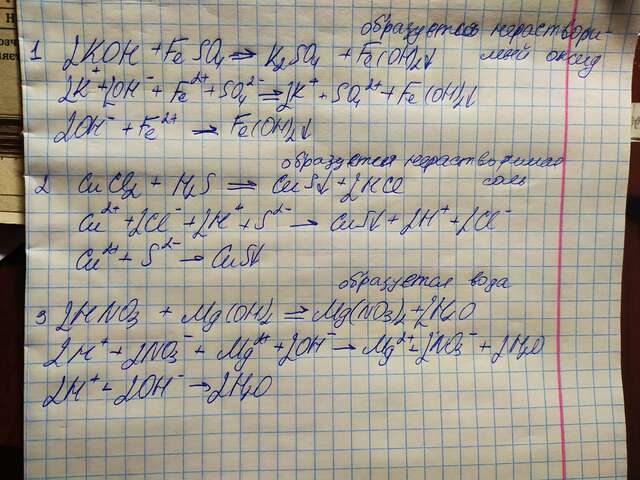 образуется нераствори-
1 2KOH + FeSO4 ⇒ K2SO4 + Fe(OH)2↓ мый оксид
2K⁺ + 2OH⁻ + Fe²⁺ + SO4²⁻ ⇒ 2K⁺ + SO4²⁺ + Fe(OH)2↓
2OH⁻ + Fe²⁺ → Fe(OH)2↓
образуется нерастворимая
2 CuCl2 + H2S ⇒ CuS↓ + 2HCl соль
Cu²⁺ + 2Cl⁻ + 2H⁺ + S²⁻ → CuS↓ + 2H⁺ + 2Cl⁻
Cu²⁺ + S²⁻ → CuS↓
образуется вода
3 2HNO3 + Mg(OH)2 ⇒ Mg(NO3)2 + 2H2O
2H⁺ + 2NO3⁻ + Mg²⁺ + 2OH⁻ → Mg²⁺ + 2NO3⁻ + 2H2O
2H⁺ + 2OH⁻ → 2H2O